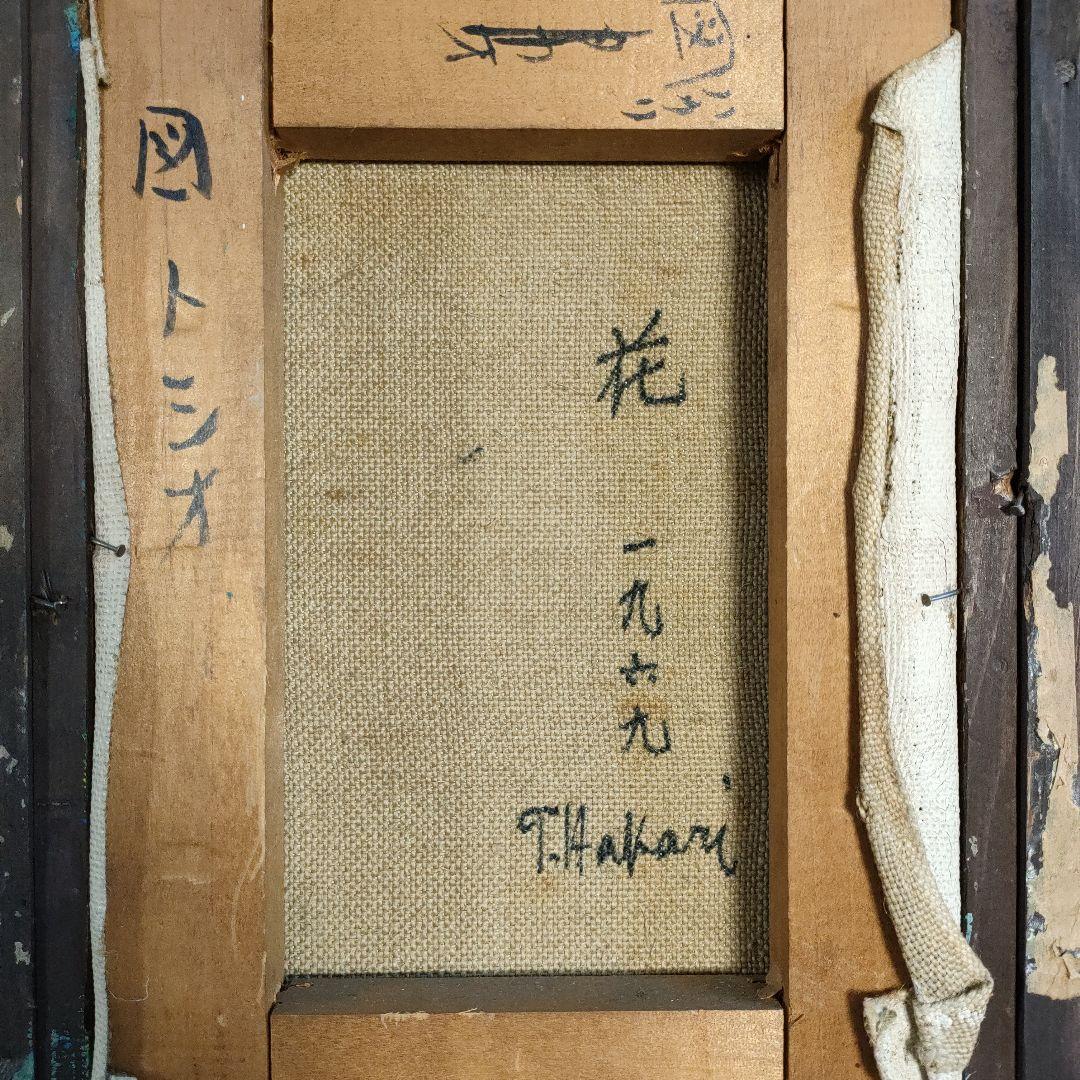 図
図トシオ
花
一九六九
T. Hakari